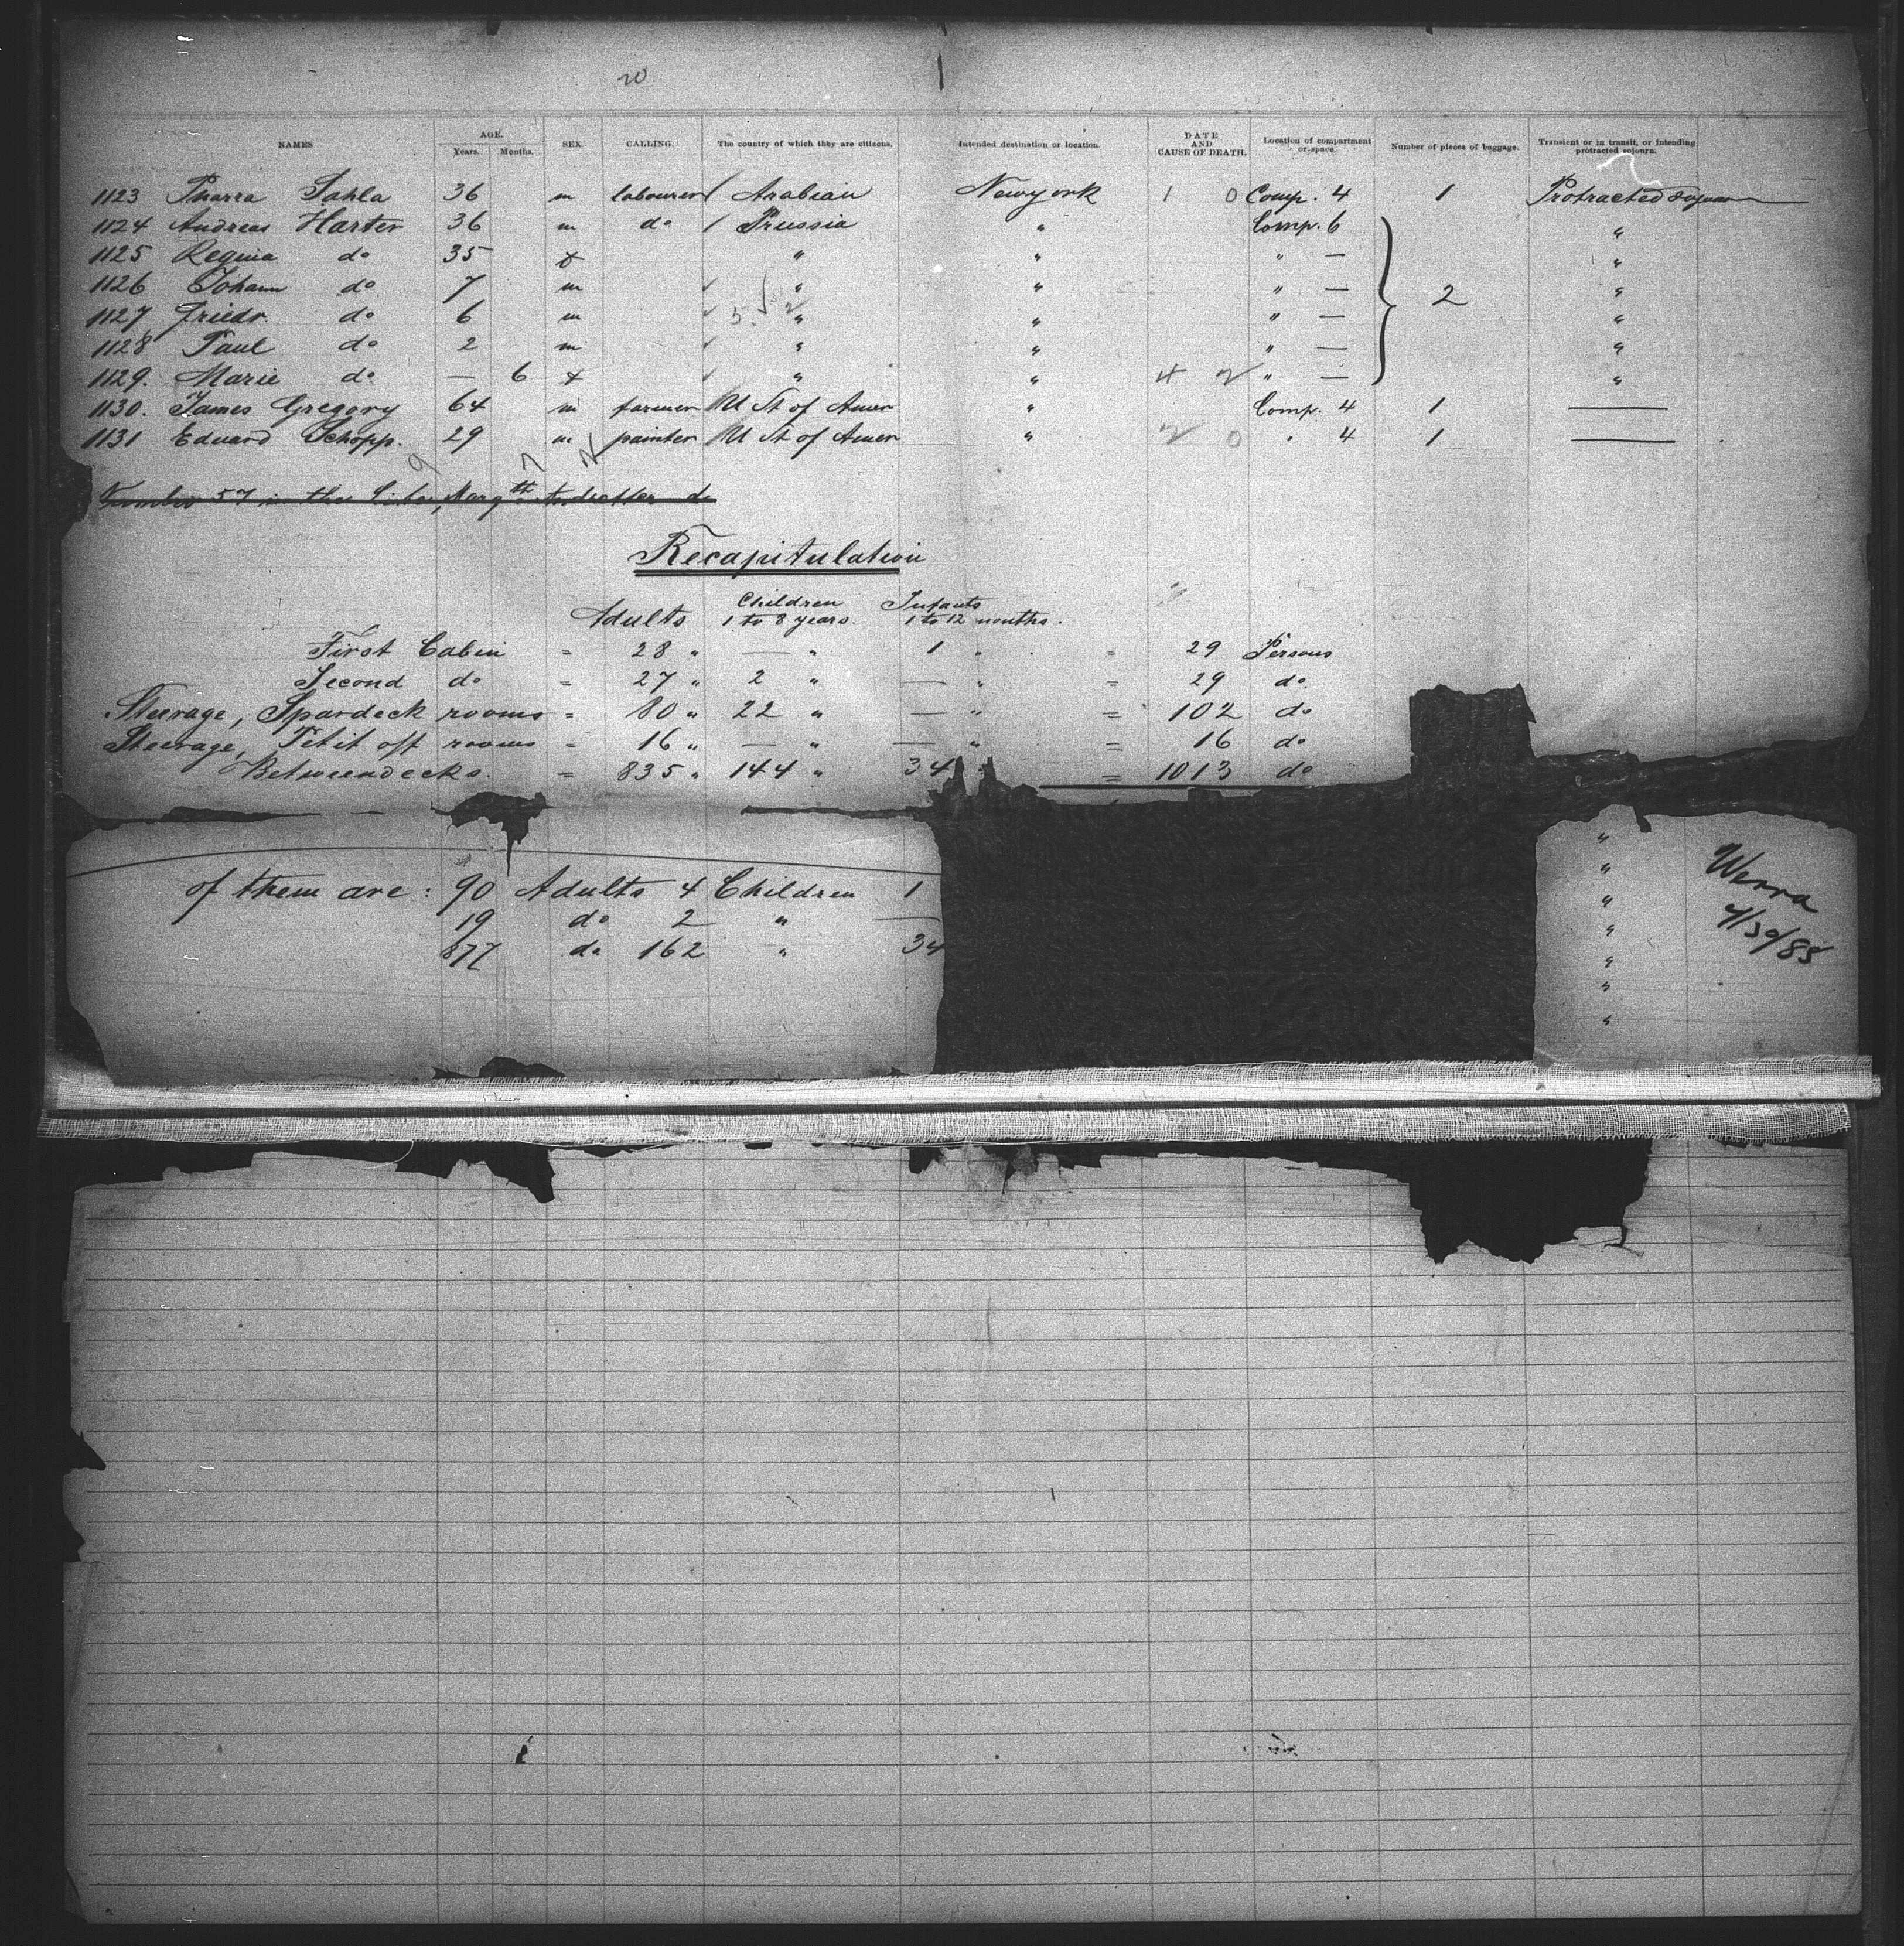 20
NAMES AGE. Years. Months. SEX CALLING. The country of which they are citizens. Intended destination or location. DATE AND CAUSE OF DEATH. Location of compartment or space. Number of pieces of baggage. Transient or in transit, or intending protracted sojourn.
1123 Tahla 36 m labourer Arabian Newyork 1 0 Comp. 4 1 Protracted sojourn
1124 Andreas Harter 36 m do / Prussia " Comp. 6 "
1125 Regina do 35 f " " " — "
1126 Johann do 7 m " " " — 2 "
1127 Friedr. do 6 m " " " — "
1128 Paul do 2 m " " " — "
1129. Marie do — 6 f " " 4 2 " — "
1130. James Gregory 64 m farmer U St of Amer " Comp. 4 1 —
1131 Eduard Schopp. 29 m painter U St of Amer " 2 0 " 4 1 —
Number 57 in the
Recapitulation
Adults Children 1 to 8 years. Infants 1 to 12 months.
First Cabin = 28 " — " 1 " = 29 Persons
Second do = 27 " 2 " — " = 29 do
Steerage, Spardeck rooms = 80 " 22 " — " = 102 do
Steerage, rooms = 16 " — " — " = 16 do
Betweendecks. = 835 " 144 " 34 " = 1013 do
of them are: 90 Adults 4 Children 1 "
19 do 2 " — "
877 do 162 " 34 "
"
"
"
"
Werra
4/30/85